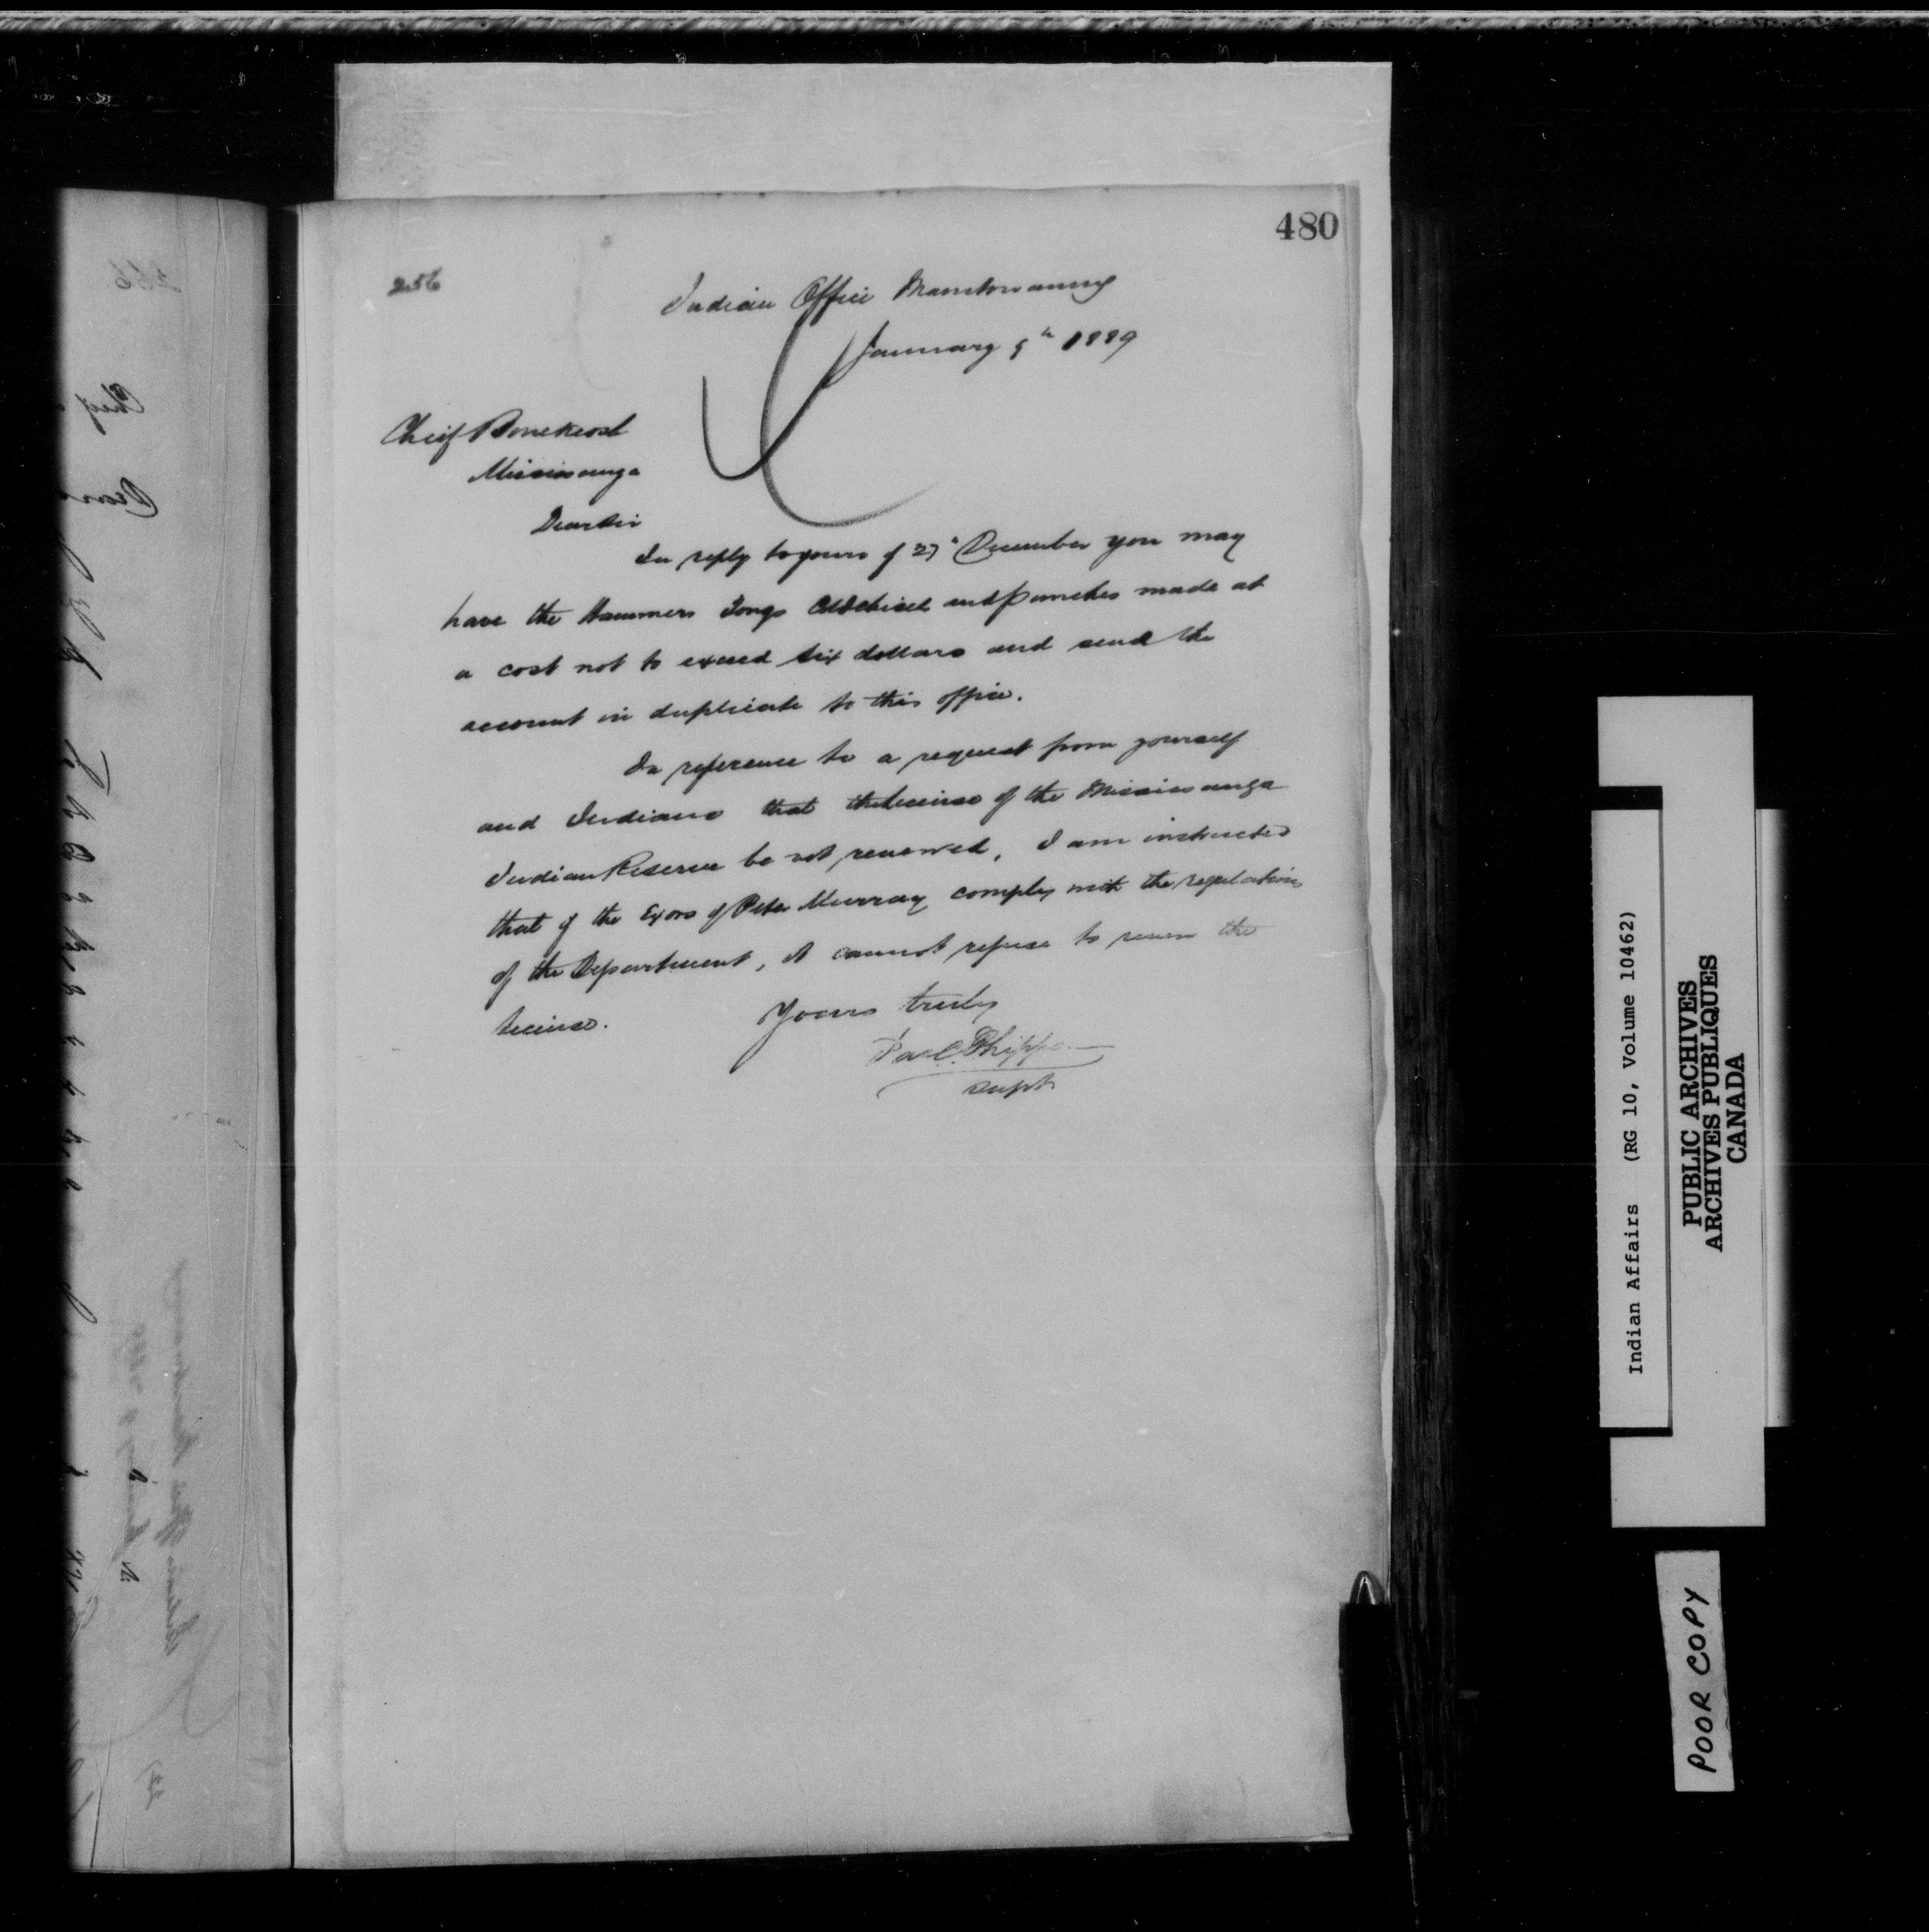 480
256
Indian Office Manitowaning
January 9th 1889
Cheif Bonekeost
Mississauga
Dear Sir
In reply to yours of 27th December you may
have the Hammers Tongs Cold chisel and punches made at
a cost not to exceed six dollars and send the
account in duplicate to this office.
In reference to a request from yourself
and Indians that the license of the Mississauga
Indian Reserve be not renewed, I am instructed
that if the Exors of Peter Murray comply with the regulations
of the Department, it cannot refuse to renew the
license.
Yours truly
Jas C. Phipps
Supt
Indian Affairs (RG 10, Volume 10462)
PUBLIC ARCHIVES
ARCHIVES PUBLIQUES
CANADA
POOR COPY